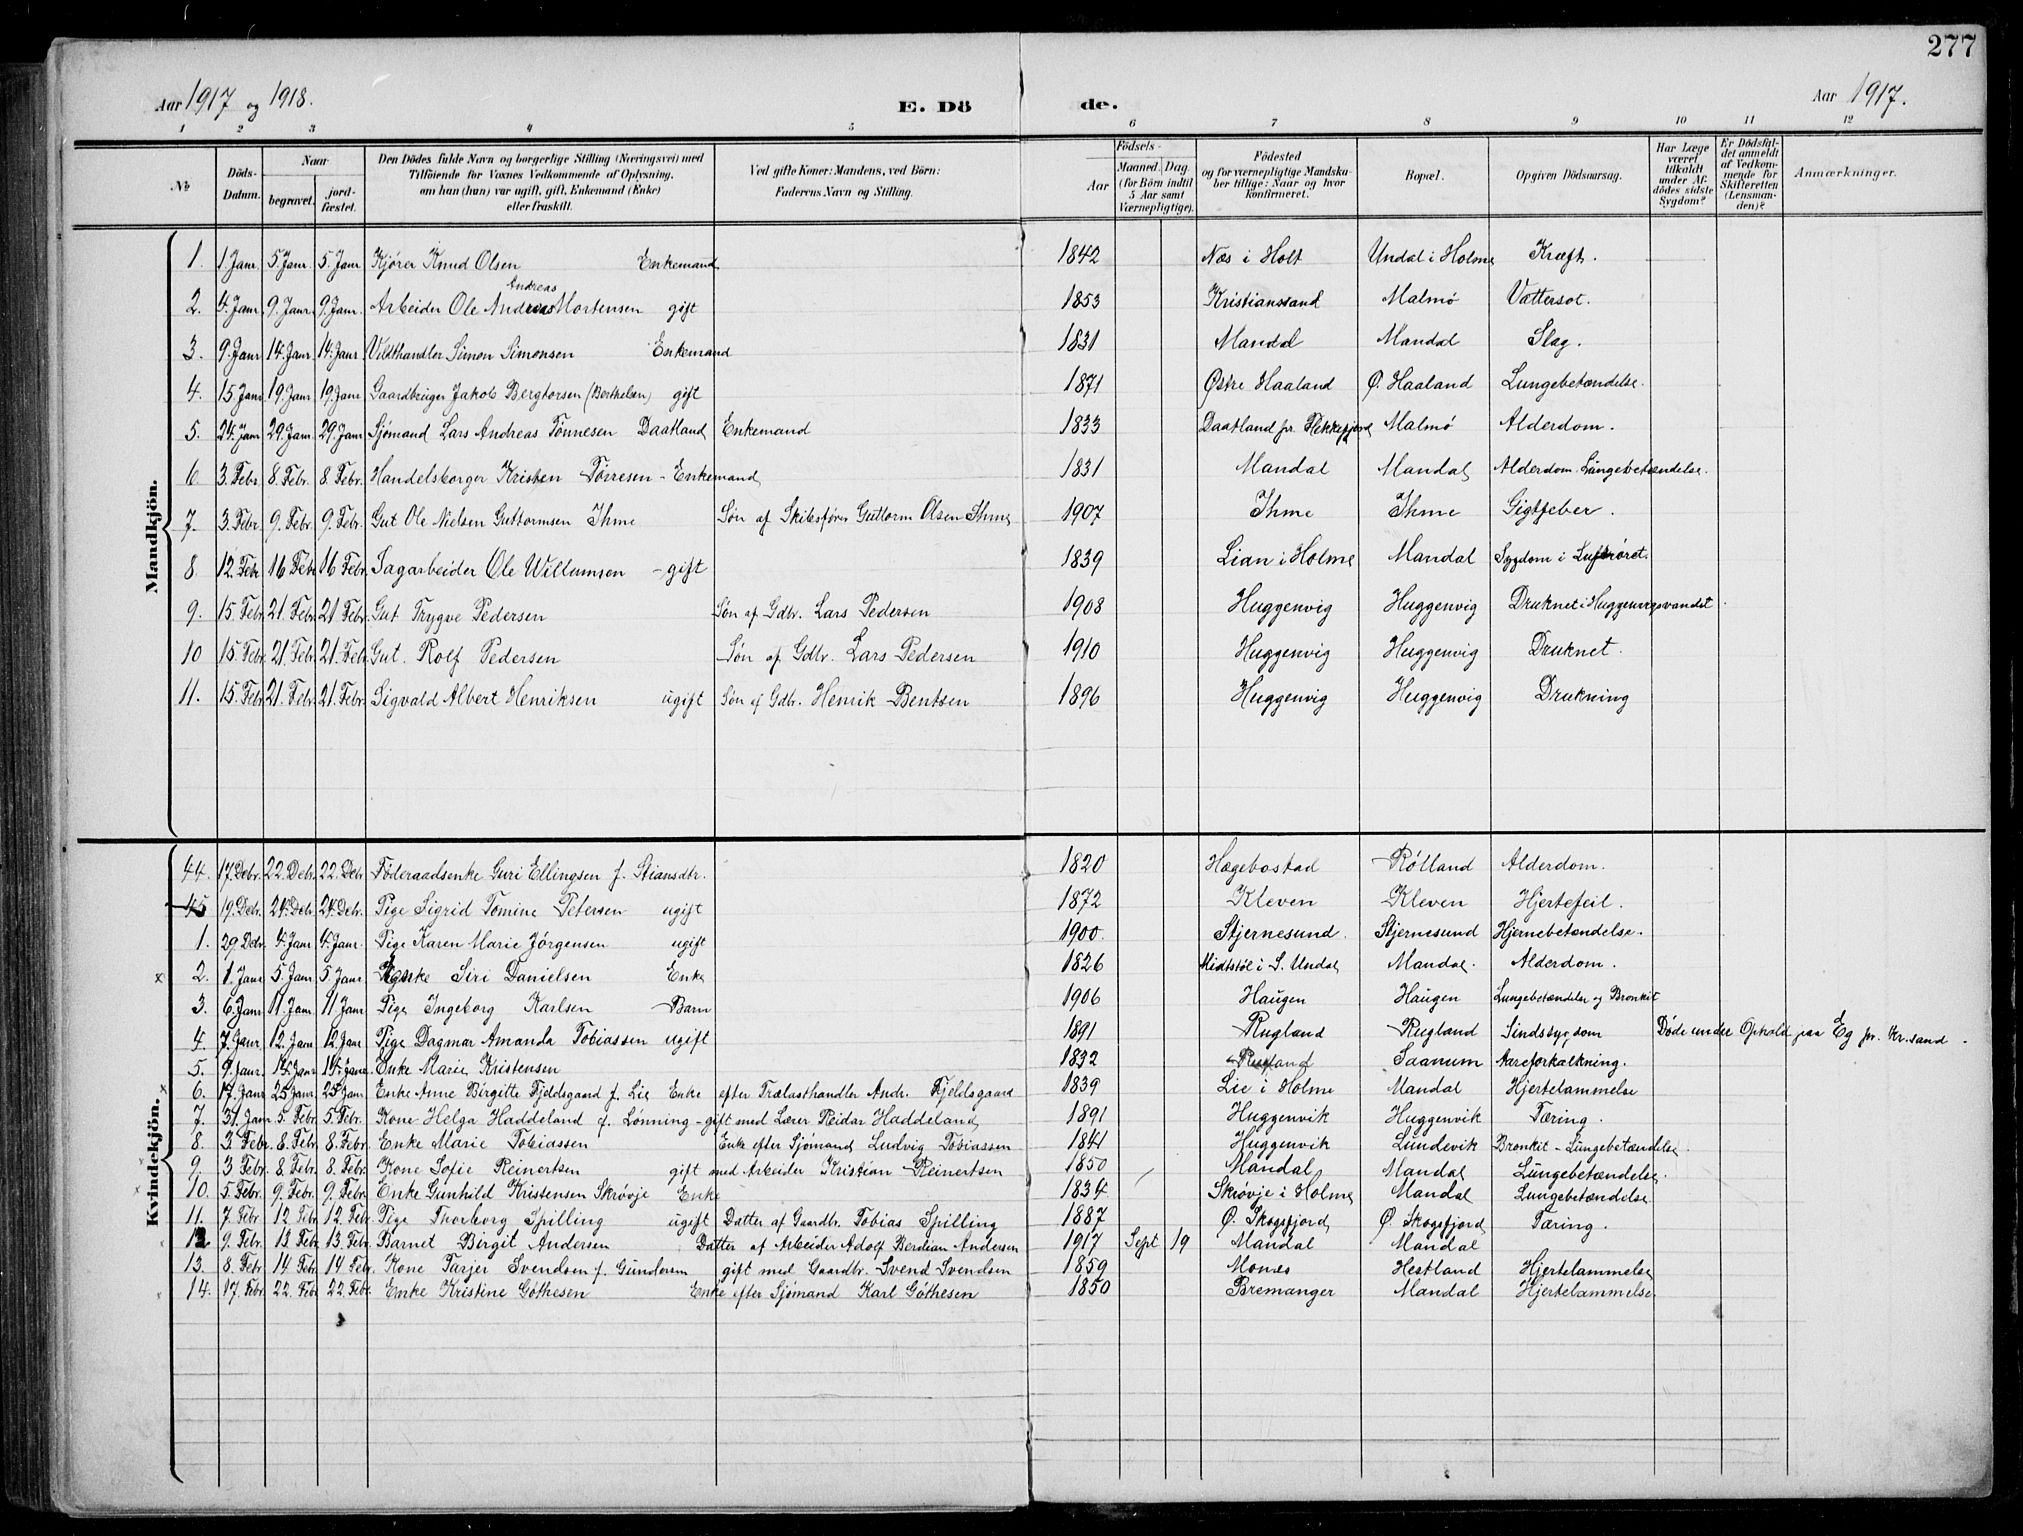 277
Aar 1917 og 1918. E. Dö de. Aar 1917.
1 2 3 4 5 6 7 8 9 10 11 12
№ Döds-Datum. Naar begravet. jordfæstet. Den Dödes fulde Navn og borgerlige Stilling (Næringsvei) med Tilföiende for Voxnes Vedkommende af Oplysning, om han (hun) var ugift, gift, Enkemand (Enke) eller fraskilt. Ved gifte Koner: Mandens, ved Börn: Faderens Navn og Stilling. Födsels- Aar Maaned. Dag. (for Börn indtil 5 Aar samt Værnepligtige). Födested og for værnepligtige Mandskaber tillige: Naar og hvor konfirmeret. Bopæl. Opgiven Dödsaarsag. Har Læge været tilkaldt under Afdödes sidste Sygdom? Er Dödsfaldet anmeldt af Vedkommende for Skifteretten (Lensmanden)? Anmærkninger.
Mandkjön.
1. 1 Janr. 5. Janr. 5. Janr Kjører Knud Olsen Enkemand 1842 Næs i Holt Undal i Holme Kræft.
Andreas
2. 4. Janr 9. Janr. 9. Janr. Arbeider Ole Andreas Mortensen gift 1853 Kristianssand Malmø Vattersot.
3. 9. Janr 14. Janr. 14. Janr. Vildthandler Simon Simonsen Enkemand 1831 Mandal Mandal Slag.
4. 15. Janr 19. Janr. 19. Janr Gaardbruger Jakob Bergtorsen (Berthelsen) gift 1871 Østre Haaland Ø. Haaland Lungebetændelse.
5. 24. Janr 29. Janr. 29. Janr Sjömand Lars Andreas Tönnesen Daatland Enkemand 1833 Daatland pr. Flekkefjord Malmö Alderdom.
6 3. Febr. 8. Febr. 8 Febr. Handelsborger Kristen Törresen - Enkemand 1831 Mandal Mandal Alderdom. Lungebetændelse.
7. 3. Febr. 9. Febr. 9. Febr. Gut Ole Nielsen Guttormsen Ihme Søn af Skibsfører Guttorm Olsen Ihme 1907 Ihme Ihme Gigtfeber.
8 12. Febr 16 Febr 16 Febr. Sagarbeider Ole Willumsen - gift 1839 Lian i Holme Mandal Sygdom i Luftrøret.
9. 15. Febr. 21. Febr. 21 Febr. Gut Trygve Pedersen Søn af Gdbr. Lars Pedersen 1908 Huggenvig Huggenvig Druknet i Huggenvigsvandet
10 15. Febr. 21. Febr. 21. Febr Gut. Rolf Pedersen Søn af Gdbr. Lars Pedersen 1910 Huggenvig Huggenvig Druknet.
11. 15. Febr 21. Febr. 21 Febr. Sigvald Albert Henriksen ugift Søn af Gdbr. Henrik Bentsen 1896 Huggenvig Huggenvig Drukning
Kvindekjön.
44. 17. Debr. 22. Debr. 22. Debr Føderaadsenke Guri Ellingsen f. Stiansdtr. 1820 Hægebostad Røiland Alderdom.
45 19. Debr. 24. Debr. 24. Debr. Pige Sigrid Tomine Petersen ugift 1872 Kleven Kleven Hjertefeil.
1. 29 Debr. 4. Janr 4. Janr. Pige Karen Marie Jørgensen ugift 1900. Stjernesund. Stjernesund Hjernebetændelse.
x 2. 1. Janr 5. Janr 5. Janr Enke Siri Danielsen Enke 1826 Midtstöl i S. Undal Mandal. Alderdom.
3. 6. Janr 11. Janr 11 Janr Pige Ingeborg Karlsen Barn 1906 Haugen Haugen Lungebetændelse og Bronkit
4. 7. Janr. 12. Janr 12. Janr Pige Dagmar Amanda Tobiassen ugift 1891 Rugland Rugland Sindssygdom Døde under Ophold paa Eg pr. Kr.sand.
5. 9. Janr. 14. Janr 14. Janr. Enke Marie Kristensen 1832 Saanum Aareforkalkning.
x 6. 17. Janr 25. Janr. 25. Janr. Enke Anne Birgitte Fjeldsgaard f. Lie Enke efter Trælasthandler Andr. Fjeldsgaard 1839 Lie i Holme Mandal Hjertelammelse
7. 31. Janr 5. Febr. 5. Febr. Kone Helga Haddeland f. Lønning - gift med Lærer Reidar Haddeland 1891 Huggenvik Huggenvik Tæring.
8. 3. Febr. 8. Febr. 8. Febr. Enke Marie Tobiassen Enke efter Sjømand Ludvig Tobiassen 1841 Huggenvik Lundevik Bronkit - Lungebetændelse.
9. 3 Febr. 8. Febr. 8. Febr. Kone Sofie Reinertsen gift med Arbeider Kristian Reinertsen 1850 Mandal Mandal Lungebetændelse.
10. 5. Febr. 9. Febr. 9. Febr. Enke Gunhild Kristensen Skrøvje Enke 1834 Skrøvje i Holme Mandal Lungebetændelse
11. 7. Febr 12. Febr 12. Febr Pige Thorborg Spilling ugift Datter af Gaardbr. Tobias Spilling 1887 Ø. Skogsfjord Ø. Skogsfjord Tæring.
12 9. Febr. 13 Febr. 13. Febr. Barnet Birgit Andersen Datter af Arbeider Adolf Berdean Andersen 1917 Sept 19 Mandal Mandal
13. 8. Febr 14 Febr. 14 Febr. Kone Tarjer Svendsen f. Gundersen gift med Gaardbr. Svend Svendsen 1859 Mones Hestland Hjertelammelse
14. 17. Febr 22. Febr 22. Febr. Enke Kristine Göthesen Enke efter Sjömand Karl Göthesen 1850 Bremanger Mandal Hjertelammelse